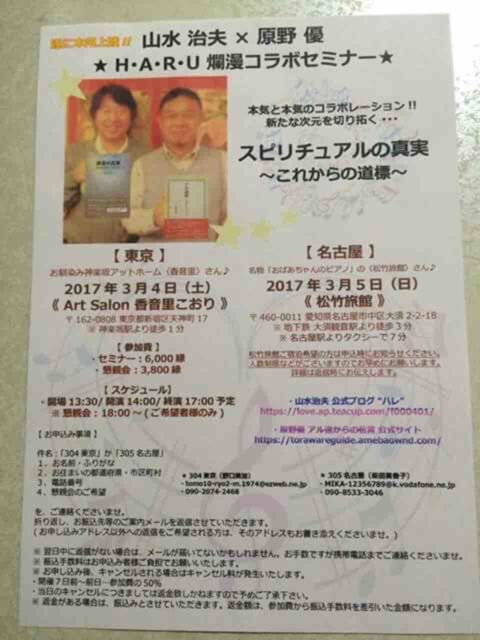 遂に本気上陸!! 山水 治夫 × 原野 優
★ H・A・R・U 爛漫コラボセミナー★
本気と本気のコラボレーション!!
新たな次元を切り拓く・・・
スピリチュアルの真実
～これからの道標～
【 東京 】
お馴染み神楽坂アットホーム〈香音里〉さん♪
2017 年 3 月 4 日（土）
《 Art Salon 香音里こおり 》
〒162-0808 東京都新宿区天神町17
※ 神楽坂駅より徒歩 1 分
【 参加費 】
・セミナー：6,000 縁
・懇親会：3,800 縁
【 スケジュール】
・開場 13:30/ 開演 14:00/ 終演 17:00 予定
※ 懇親会：18:00 ～ ( ご希望者様のみ )
【 名古屋 】
名物「おばあちゃんのピアノ」の〈松竹旅館〉さん♪
2017 年 3 月 5 日（日）
《 松竹旅館 》
〒 460-0011 愛知県名古屋市中区大須 2-2-18
※ 地下鉄 大須観音駅より徒歩 3 分
※ 名古屋駅よりタクシーで 7 分
松竹旅館ご宿泊希望の方は申込時にお知らせください。
人数制限などがございますのでお早めにお願いします。
詳細は返信時にお伝えします。
・山水治夫 公式ブログ "ハレ"
https://love.ap.teacup.com/f000401/
・原野優 アル達からの伝言 公式サイト
https://torawareguide.amebaownd.com/
【 お申込み事項 】
件名：「304 東京」か「305 名古屋」
1．お名前・ふりがな
2．お住まいの都道府県・市区町村
3．電話番号
4．懇親会のご希望
※ 304 東京（野口美加）
・tomo10-ryo2-m.1974@ezweb.ne.jp
・090-2074-2468
※ 305 名古屋（柴田美香子）
・MIKA-12356789@k.vodafone.ne.jp
・090-8533-3046
を、ご連絡くださいませ。
折り返し、お振込先等のご案内メールを返信させていただきます。
( お申し込みアドレス以外への返信をご希望される方は、そのアドレスもお書き添えくださいませ。)
※ 翌日中にご返信がない場合は、メールが届いてないかもしれません。お手数ですが携帯電話までご連絡くださいませ。
※ 振込手数料はお申込み者様ご負担でお願いいたします。
※ お申し込み後、キャンセルされる場合はキャンセル料が発生いたします。
・開催 7 日前～前日…参加費の 50％
・当日のキャンセルにつきましては返金致しかねますので予めご了承下さい。
※ 返金がある場合は、振込みとさせていただきます。返金額は、参加費から振込手数料を差引いた金額になります。